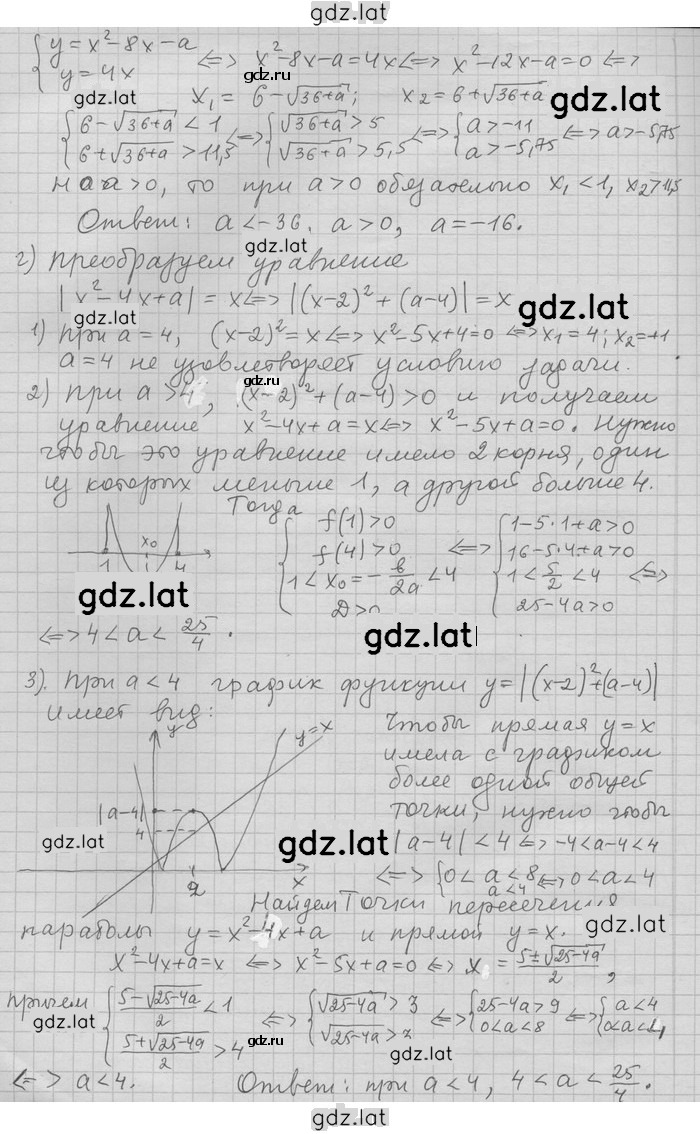 gdz.lat
{ y = x² - 8x - a
{ y = 4x <=> x² - 8x - a = 4x <=> x² - 12x - a = 0 <=>
gdz.lat x₁ = 6 - √(36+a); x₂ = 6 + √(36+a) gdz.lat
{ 6 - √(36+a) < 1
{ 6 + √(36+a) > 11,5 <=> { √(36+a) > 5
{ √(36+a) > 5,5 <=> { a > -11
{ a > -5,75 <=> a > -5,75
но a > 0, то при a > 0 обязательно x₁ < 1, x₂ > 11,5
Ответ: a < -36, a > 0, a = -16.
gdz.lat
г) преобразуем уравнение
|x² - 4x + a| = x <=> |(x-2)² + (a-4)| = x
gdz.lat gdz.lat
1) при a = 4, (x-2)² = x <=> x² - 5x + 4 = 0 <=> x₁ = 4; x₂ = +1
a = 4 не удовлетворяет условию задачи.
2) при a > 4, (x-2)² + (a-4) > 0 и получаем
gdz.lat
уравнение x² - 4x + a = x <=> x² - 5x + a = 0. Нужно
чтобы это уравнение имело 2 корня, один
из которых меньше 1, а другой больше 4.
Тогда
1 x₀ 4
{ f(1) > 0
{ f(4) > 0
{ 1 < x₀ = -в/2a < 4
{ D > 0
<=> { 1 - 5·1 + a > 0
{ 16 - 5·4 + a > 0
{ 1 < 5/2 < 4
{ 25 - 4a > 0 <=>
gdz.lat gdz.lat
<=> 4 < a < 25/4.
3). при a < 4 график функции y = |(x-2)² + (a-4)|
имеет вид:
y
y = x
|a-4|
4
2
x
gdz.lat gdz.lat
Чтобы прямая y = x
имела с графиком
более одной общей
точки, нужно чтобы
|a-4| < 4 <=> -4 < a-4 < 4
<=> { 0 < a < 8
{ a < 4 <=> 0 < a < 4
Найдем точки пересечения
параболы y = x² - 4x + a и прямой y = x.
gdz.lat
x² - 4x + a = x <=> x² - 5x + a = 0 <=> x = (5 ± √(25-4a))/2,
причем { (5 - √(25-4a))/2 < 1
{ (5 + √(25-4a))/2 > 4
<=> { √(25-4a) > 3
{ √(25-4a) > 3 <=> { 25 - 4a > 9
{ 0 < a < 8 <=> { a < 4
{ 0 < a < 4
gdz.lat gdz.lat gdz.lat
<=> a < 4. Ответ: при a < 4, 4 < a < 25/4.
gdz.lat